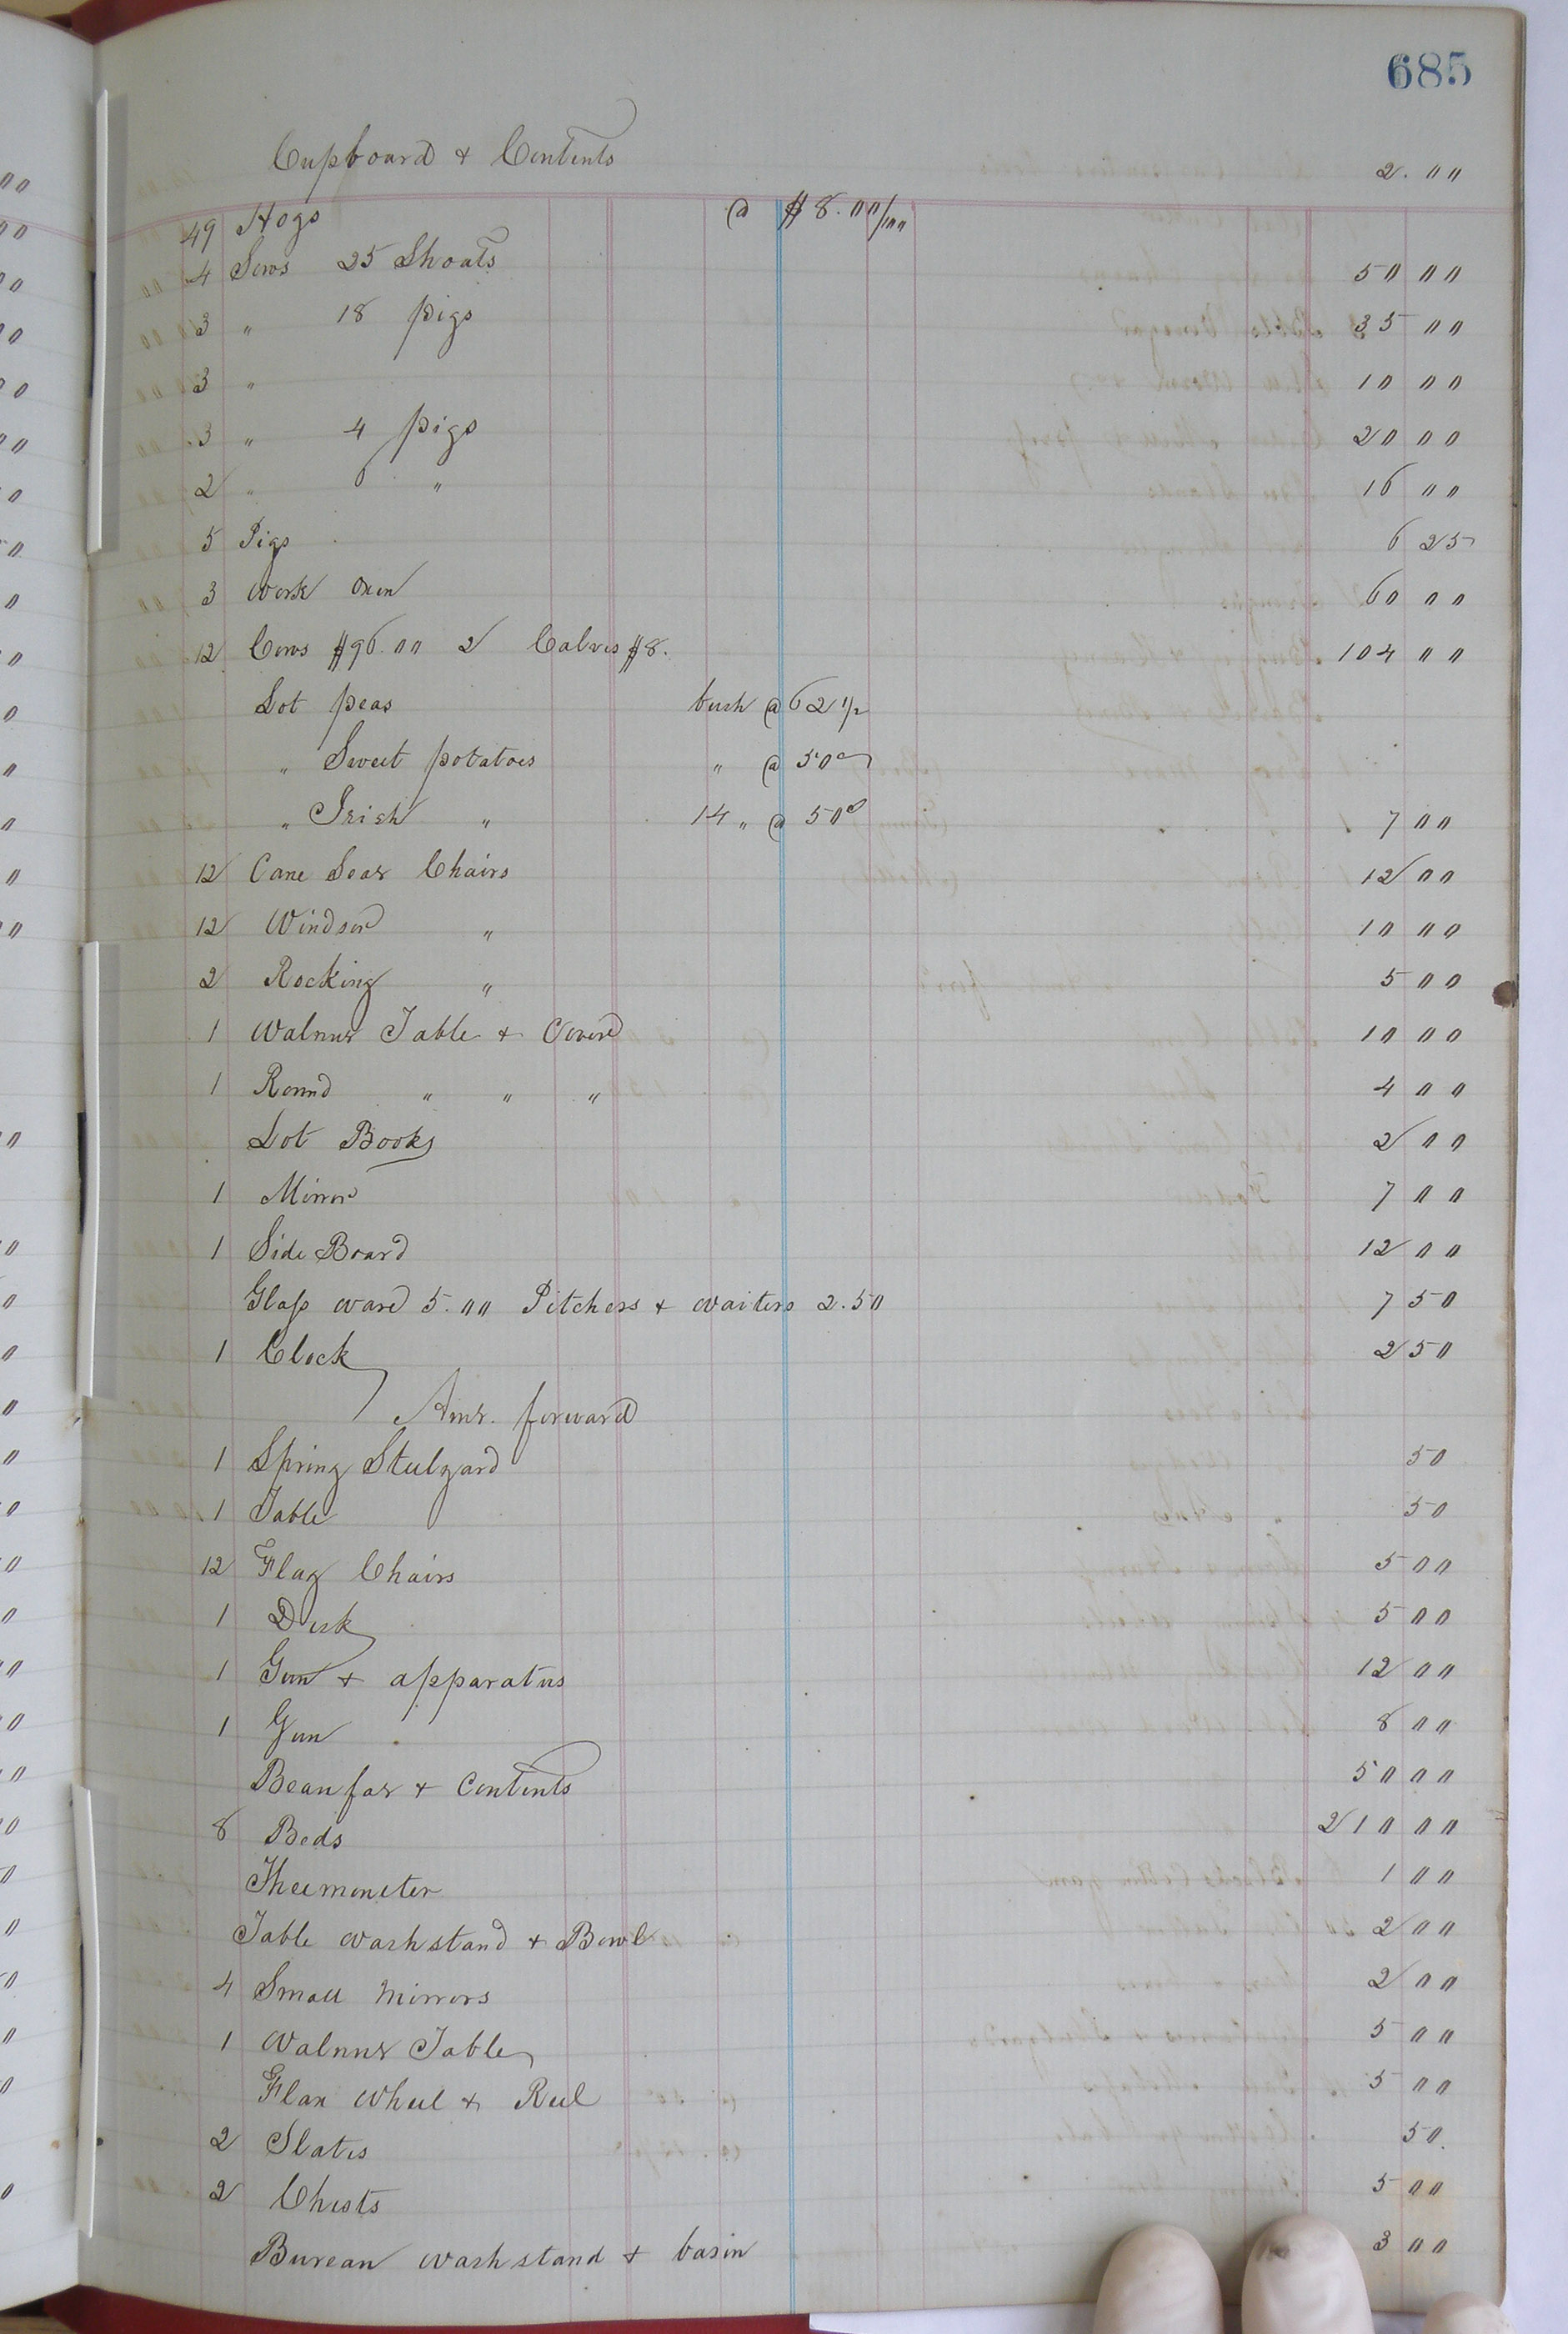 685
Cupboard & Contents 2.00
49 Hogs @ $8.00/100
4 Sows 25 Shoats 50 00
3 " 18 pigs 35 00
3 " 10 00
3 " 4 pigs 20 00
2 " 6 " 16 00
5 Pigs 6 25
3 Work Oxen 60 00
12 Cows $96.00 2 Calves $8. 104 00
Lot peas bush @ 62 1/2
" Sweet potatoes " @ 50c
" Irish " 14 " @ 50c 7 00
12 Cane Seat Chairs 12 00
12 Windsor " 10 00
2 Rocking " 5 00
1 Walnut Table & Cover 10 00
1 Round " " " 4 00
Lot Books 2 00
1 Mirror 7 00
1 Side Board 12 00
Glass ware 5.00 Pitchers & waiters 2.50 7 50
1 Clock 2 50
Amt. forward
1 Spring Steelyard 50
1 Table 50
12 Flag Chairs 5 00
1 Desk 5 00
1 Gun & apparatus 12 00
1 Gun 8 00
Beaufat & Contents 50 00
8 Beds 210 00
Thermometer 1 00
Table washstand & Bowl 2 00
4 Small Mirrors 2 00
1 Walnut Table 5 00
Flax Wheel & Reel 5 00
2 Slates 50.
2 Chests 5 00
Bureau washstand & basin 3 00